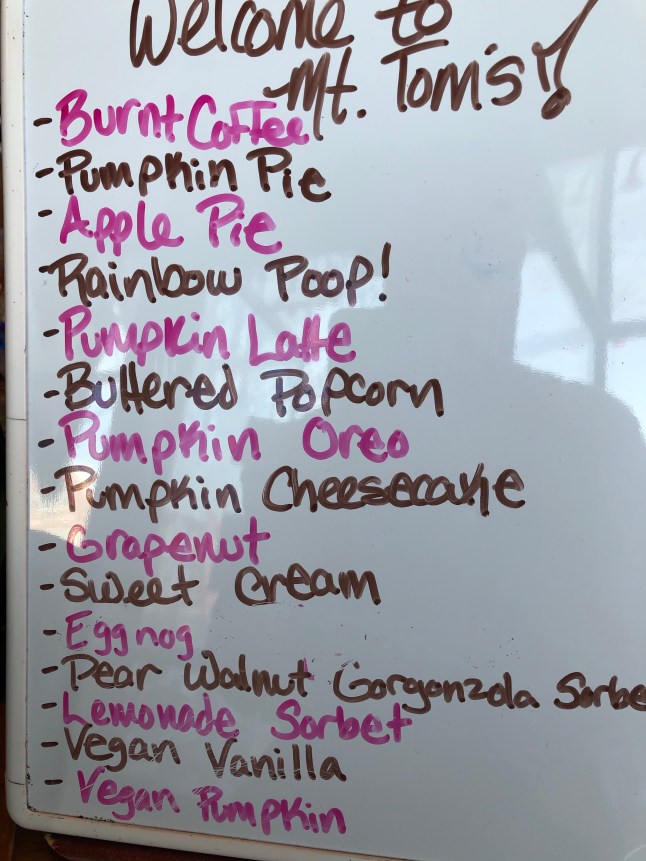 Welcome to
Mt. Tom's!
- Burnt Coffee
- Pumpkin Pie
- Apple Pie
- Rainbow Poop!
- Pumpkin Latte
- Buttered Popcorn
- Pumpkin Oreo
- Pumpkin Cheesecake
- Grapenut
- Sweet Cream
- Eggnog
- Pear Walnut Gorgonzola Sorbe
- Lemonade Sorbet
- Vegan Vanilla
- Vegan Pumpkin